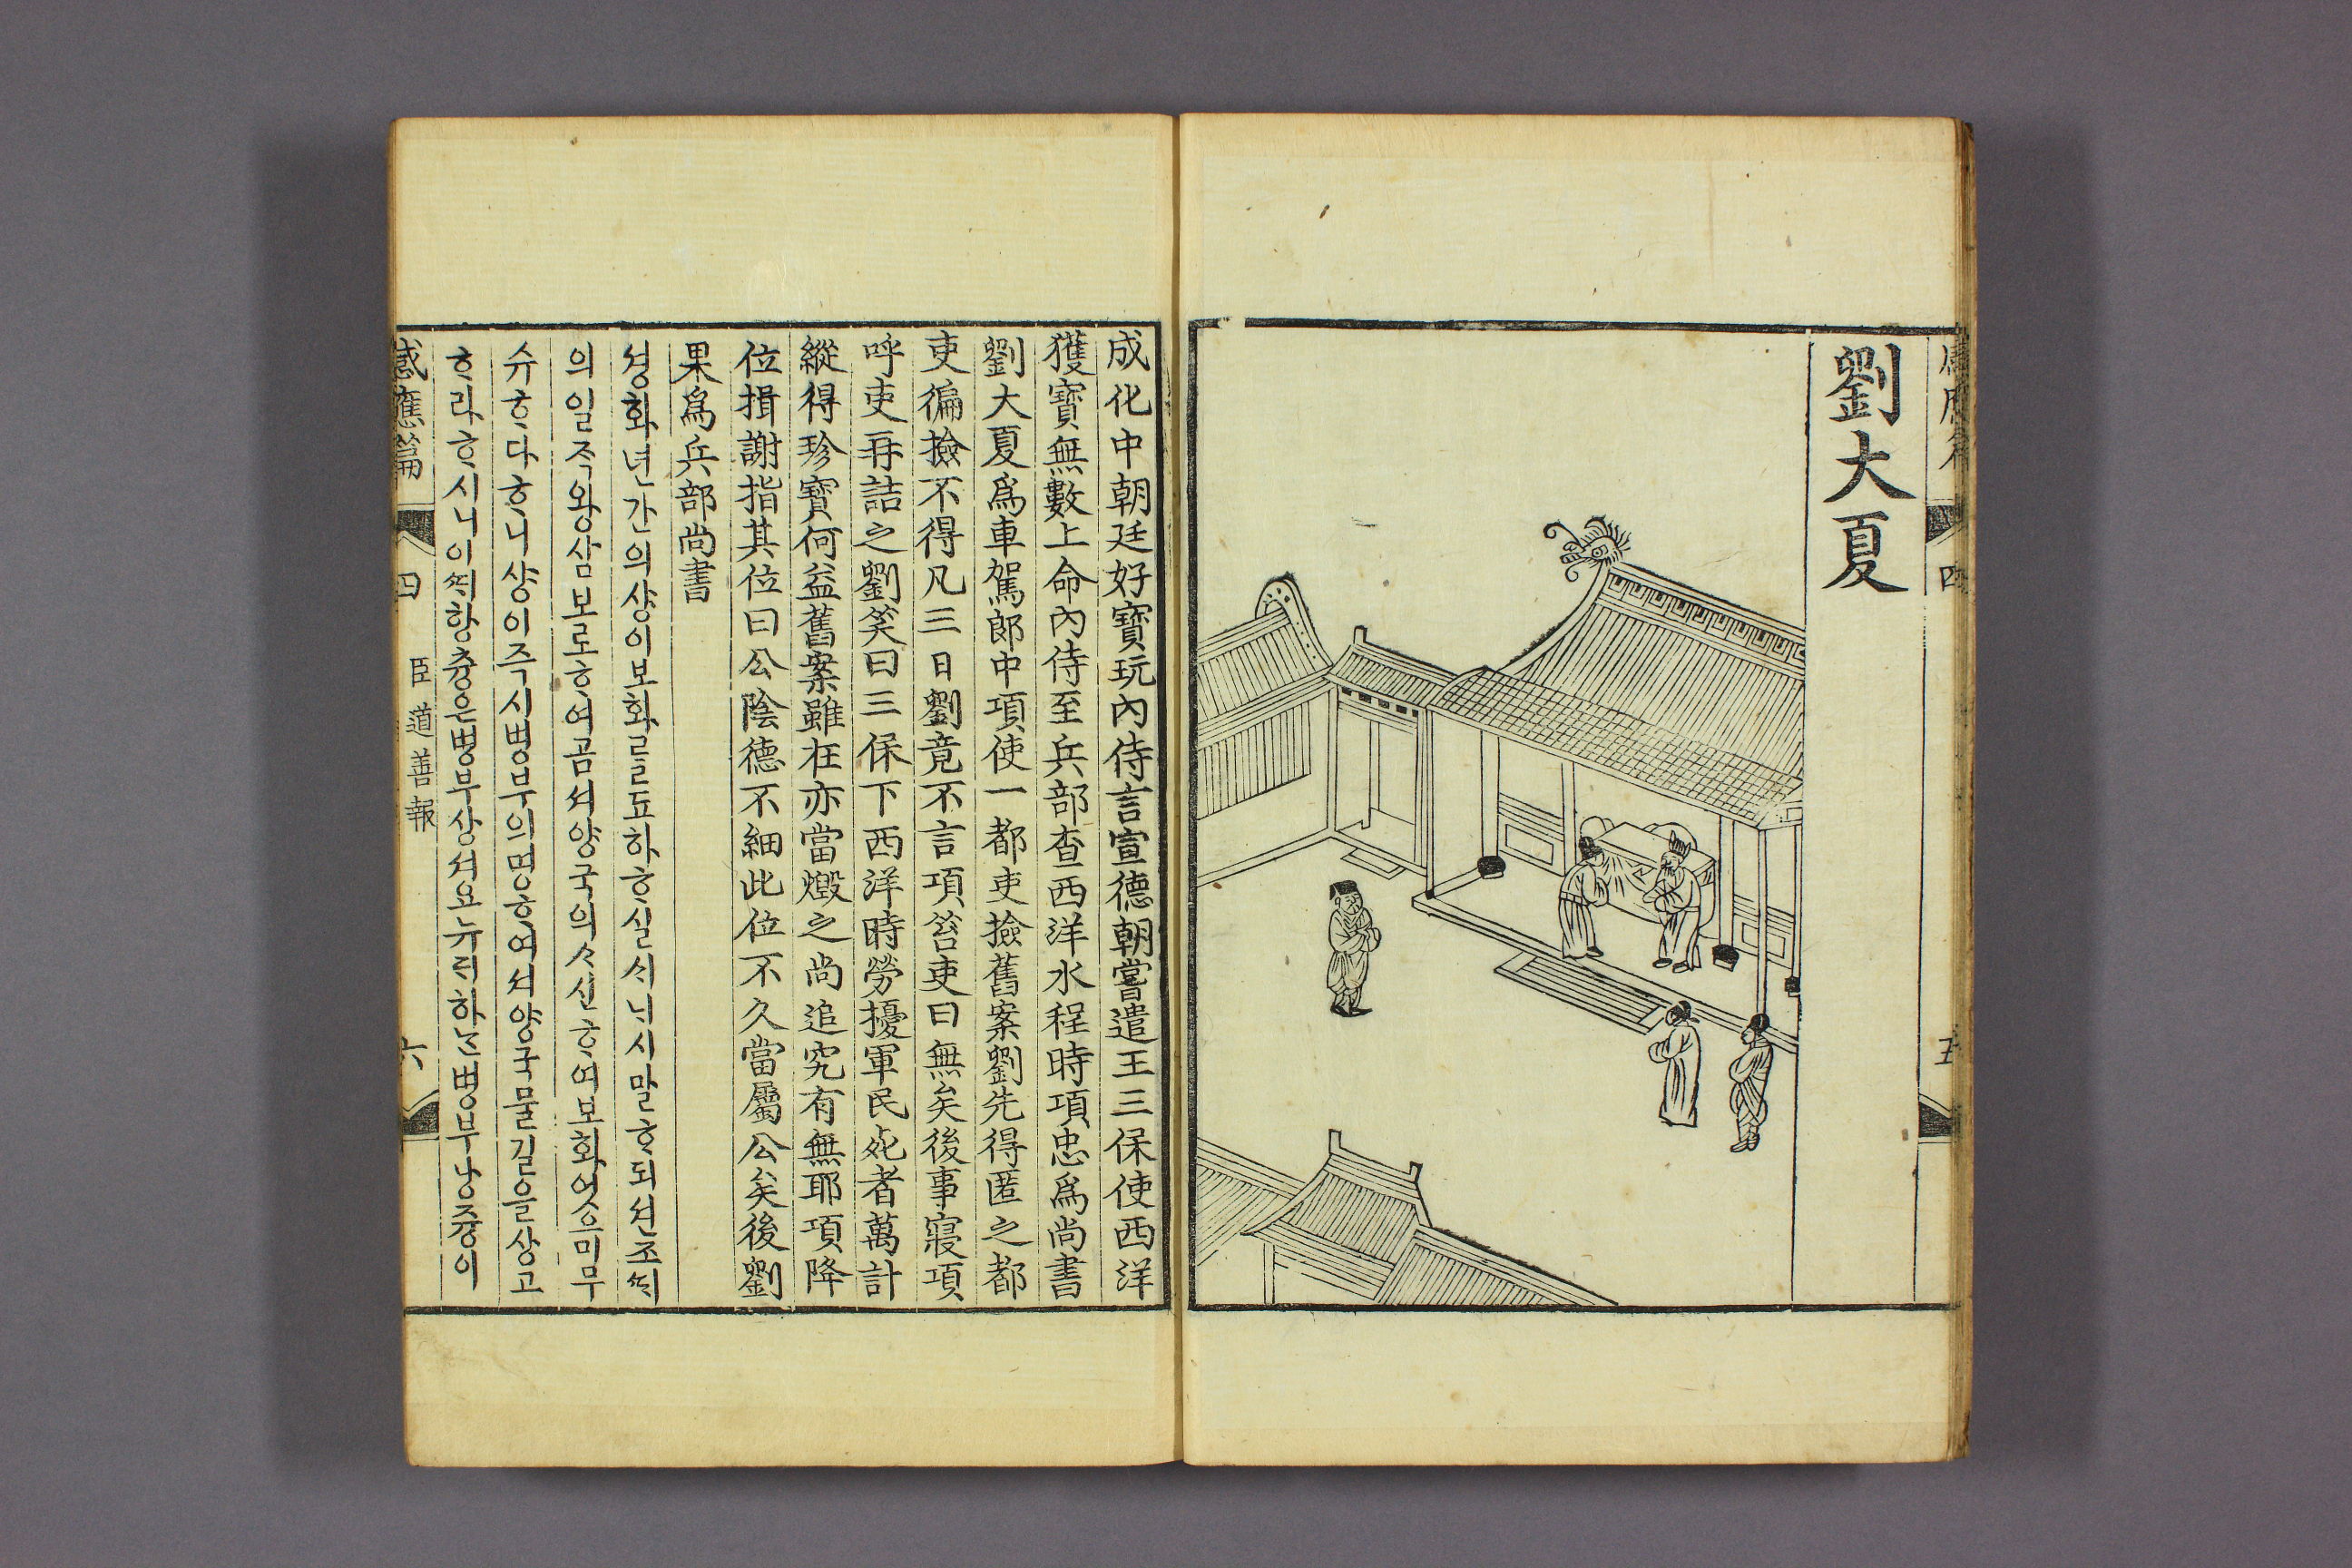 劉大夏
四
五
成化中朝廷好寶玩內侍言宣德朝嘗遣王三保使西洋
獲寶無數上命內侍至兵部查西洋水程時項忠爲尚書
劉大夏爲車駕郎中項使一都吏撿舊案劉先得匿之都
吏徧撿不得凡三日劉竟不言項笞吏曰無矣後事寢項
呼吏再詰之劉笑曰三保下西洋時勞擾軍民死者萬計
縱得珍寶何益舊案雖在亦當燬之尚追究有無耶項降
位揖謝指其位曰公陰德不細此位不久當屬公矣後劉
果爲兵部尚書
셩화년간의샹이보화ᄅᆞᆯ됴하ᄒᆞ실ᄉᆡᄂᆡ시말ᄒᆞ되션조ᄯᆡ
의일즉왕삼보로ᄒᆞ여곰셔양국의ᄉᆞ신ᄒᆞ여보화엇으미무
슈ᄒᆞ다ᄒᆞ니샹이즉시병부의명ᄒᆞ여셔양국물길을상고
ᄒᆞ라ᄒᆞ시니이ᄯᆡ항츙은병부상셔요뉴ᄃᆡ하ᄂᆞᆫ병부낭즁이
感應篇
四
臣道善報
六